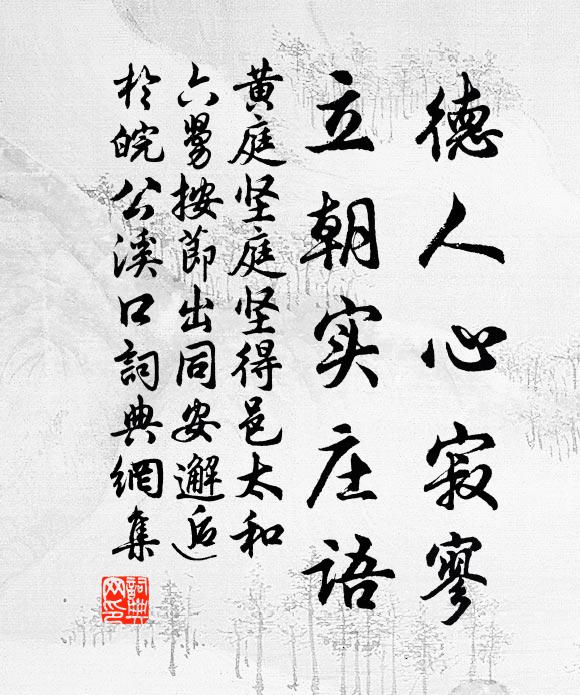 德人心寂寥
立朝实庄语
黄庭坚庭坚得邑太和
六舅按節出同安邂逅
於皖公溪口詞典網集
詞典
网印